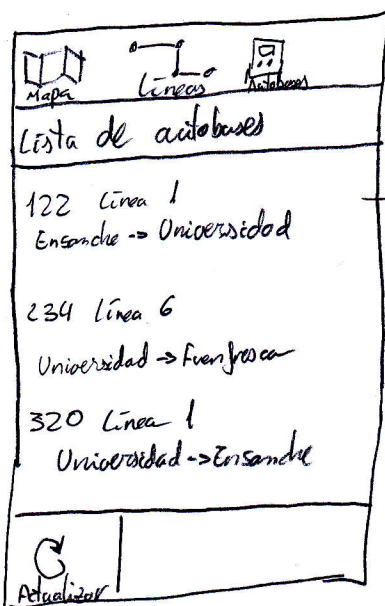 Mapa Líneas Autobuses
Lista de autobuses
122 Línea 1
Ensanche -> Universidad
234 Línea 6
Universidad -> Fuenfresca
320 Línea 1
Universidad -> Ensanche
Actualizar